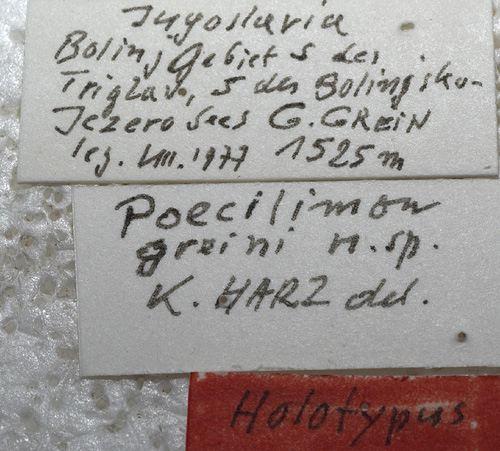 Jugoslavia
Bolinj Gebiet S des
Triglav, S des Bolinjsko-
Jezero Sees G. GREIN
leg. VIII. 1977 1525 m
Poecilimon
greini n. sp.
K. HARZ det.
Holotypus